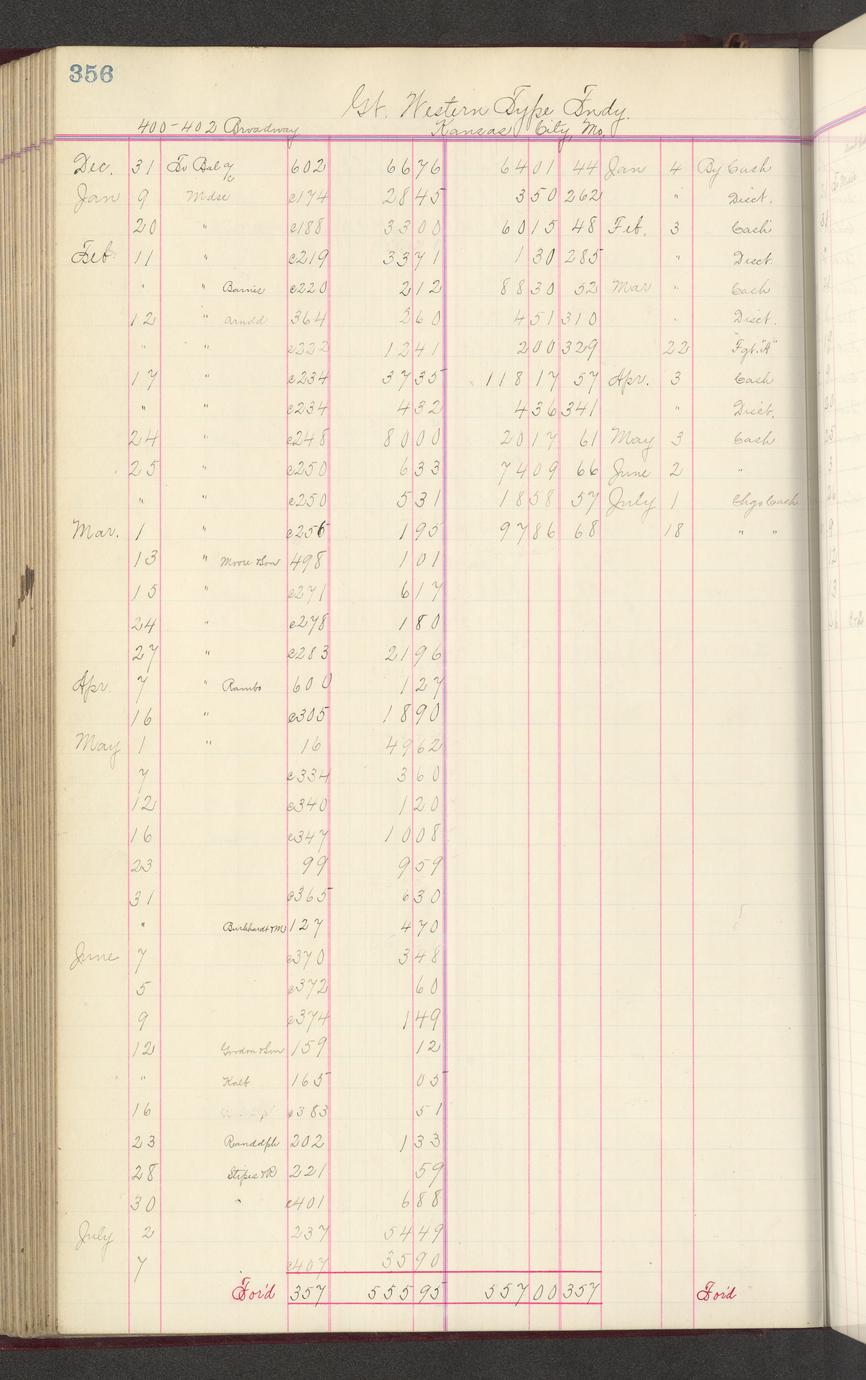 356
Gt. Western Type Fndy.
400-402 Broadway Kansas City, Mo.
Dec. 31 To Bal a/c 602 6676 6401 44 Jan 4 By Cash
Jan 9 Mdse c174 2845 350 262 " Disct.
20 " c188 3300 6015 48 Feb. 3 Cash
Feb. 11 " c219 3371 130 285 " Disct.
" " Barnes c220 212 8830 52 Mar " Cash
12 " Arnold 364 260 451 310 " Disct.
" " c222 1241 200 329 22 Fgt. "A"
17 " c234 3735 11817 57 Apr. 3 Cash
" " c234 432 436 341 " Disct.
24 " c248 8000 2017 61 May 3 Cash
25 " c250 633 7409 66 June 2 "
" " c250 531 1858 57 July 1 Chgo Cash
Mar. 1 " c256 195 9786 68 18 " "
13 " Moore & Son 498 101
15 " c271 617
24 " c278 180
27 " c283 2196
Apr. 7 " Rambo 600 127
16 " c305 1890
May 1 " 16 4962
7 c334 360
12 c340 120
16 c347 1008
23 99 959
31 c365 630
" Burkhardt & M 127 470
June 7 c370 348
5 c372 60
9 c374 149
12 Gordon & Son 159 12
" Kalb 165 05
16 c383 51
23 Randolph 202 133
28 Stipes & D 221 59
30 " c401 688
July 2 237 5449
7 c407 3590
For'd 357 55595 55700 357 For'd